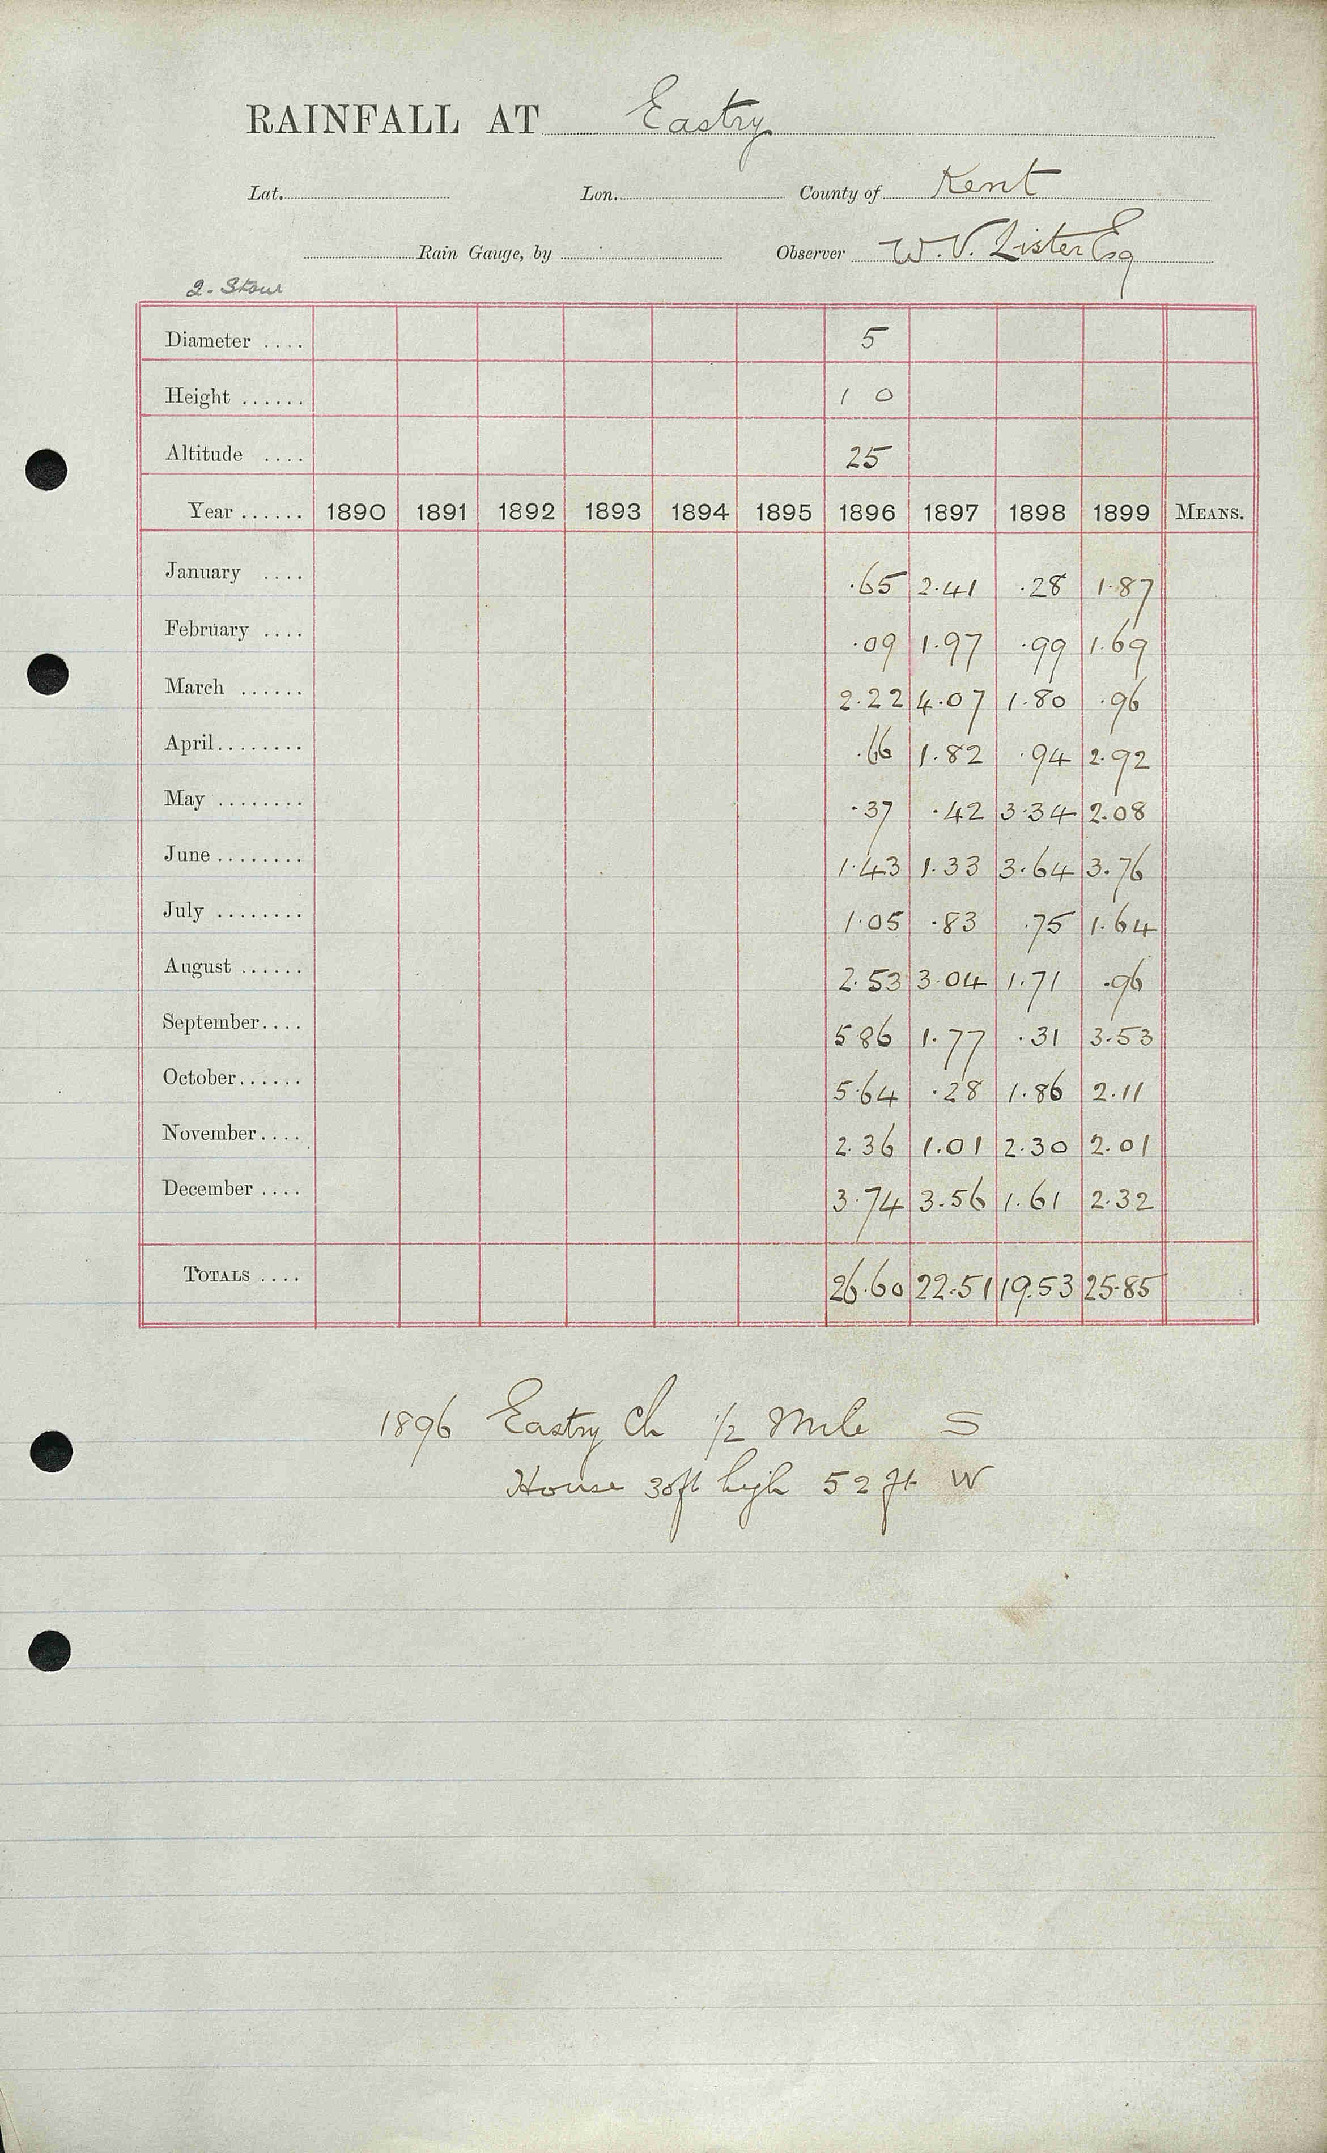 RAINFALL AT Eastry
Lat. Lon. County of Kent
Rain Gauge, by Observer W. V. Lister Esq
2. Stour
Diameter .... 5
Height ...... 1 0
Altitude .... 25
Year ...... 1890 1891 1892 1893 1894 1895 1896 1897 1898 1899 MEANS.
January .... .65 2.41 .28 1.87
February .... .09 1.97 .99 1.69
March ...... 2.22 4.07 1.80 .96
April........ .66 1.82 .94 2.92
May ........ .37 .42 3.34 2.08
June ........ 1.43 1.33 3.64 3.76
July ........ 1.05 .83 .75 1.64
August ...... 2.53 3.04 1.71 .96
September.... 5 86 1.77 .31 3.53
October...... 5.64 .28 1.86 2.11
November.... 2.36 1.01 2.30 2.01
December .... 3.74 3.56 1.61 2.32
TOTALS .... 26.60 22.51 19.53 25.85
1896 Eastry Ch 1/2 Mile S
House 30ft high 52 ft W